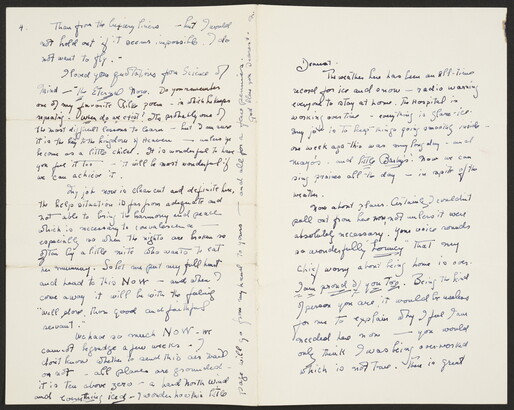 4.
Than from the luxury liners – but I would
not hold out if it seems impossible. I do
not want to fly. –
I loved your quotations from Science of
Mind – "The Eternal Now. Do you remember
one of my favourite poems – in which he keeps
repeating: "When do we exist? It's probably one of
the most difficult lessons to learn – but I'm sure
it is the key to the kingdom of heaven – unless ye
become as a little child. It is wonderful to have
you feel it too – it will be most wonderful if
we can achieve it.
My job now is clear cut and definite here,
the help situation is far from adequate and
not able to bring the harmony and peace
which is necessary to convalescence,
especially so when the nights are broken so
often by a little mite who wants to eat
her mummy. So let me put my full heart
and head to this NOW – and when I
come away it will be with the feeling
"well done, thou good and faithful
servant."
We have so much NOW – we
cannot begrudge a few weeks. – I
don't know whether to send this air mail
or not – all planes are grounded –
it is ten above zero – a hard north wind
and everything iced – I wonder how this little
page will go from my hand to yours – and all for a
Dearest.
The weather here has been an all-time
record for ice and snow – radio warning
everyone to stay at home. The Hospital is
working overtime – everything is glare-ice.
my job is to keep things going smoothly inside –
one week ago this was my first day – and
Margo's – and little Bunty's. Now we can
sing praises all the day – in spite of the
weather.
Now about plans. Certainly I couldn't
pull out from here now unless it were
absolutely necessary. Your voice sounds
so wonderfully "homey" that my
chief worry about being home is over.
I am proud of you too. Being the kind
of person you are, it would be useless
for me to explain why I feel I am
needed here now – you would
only think I was being overworked
which is not true. There is great